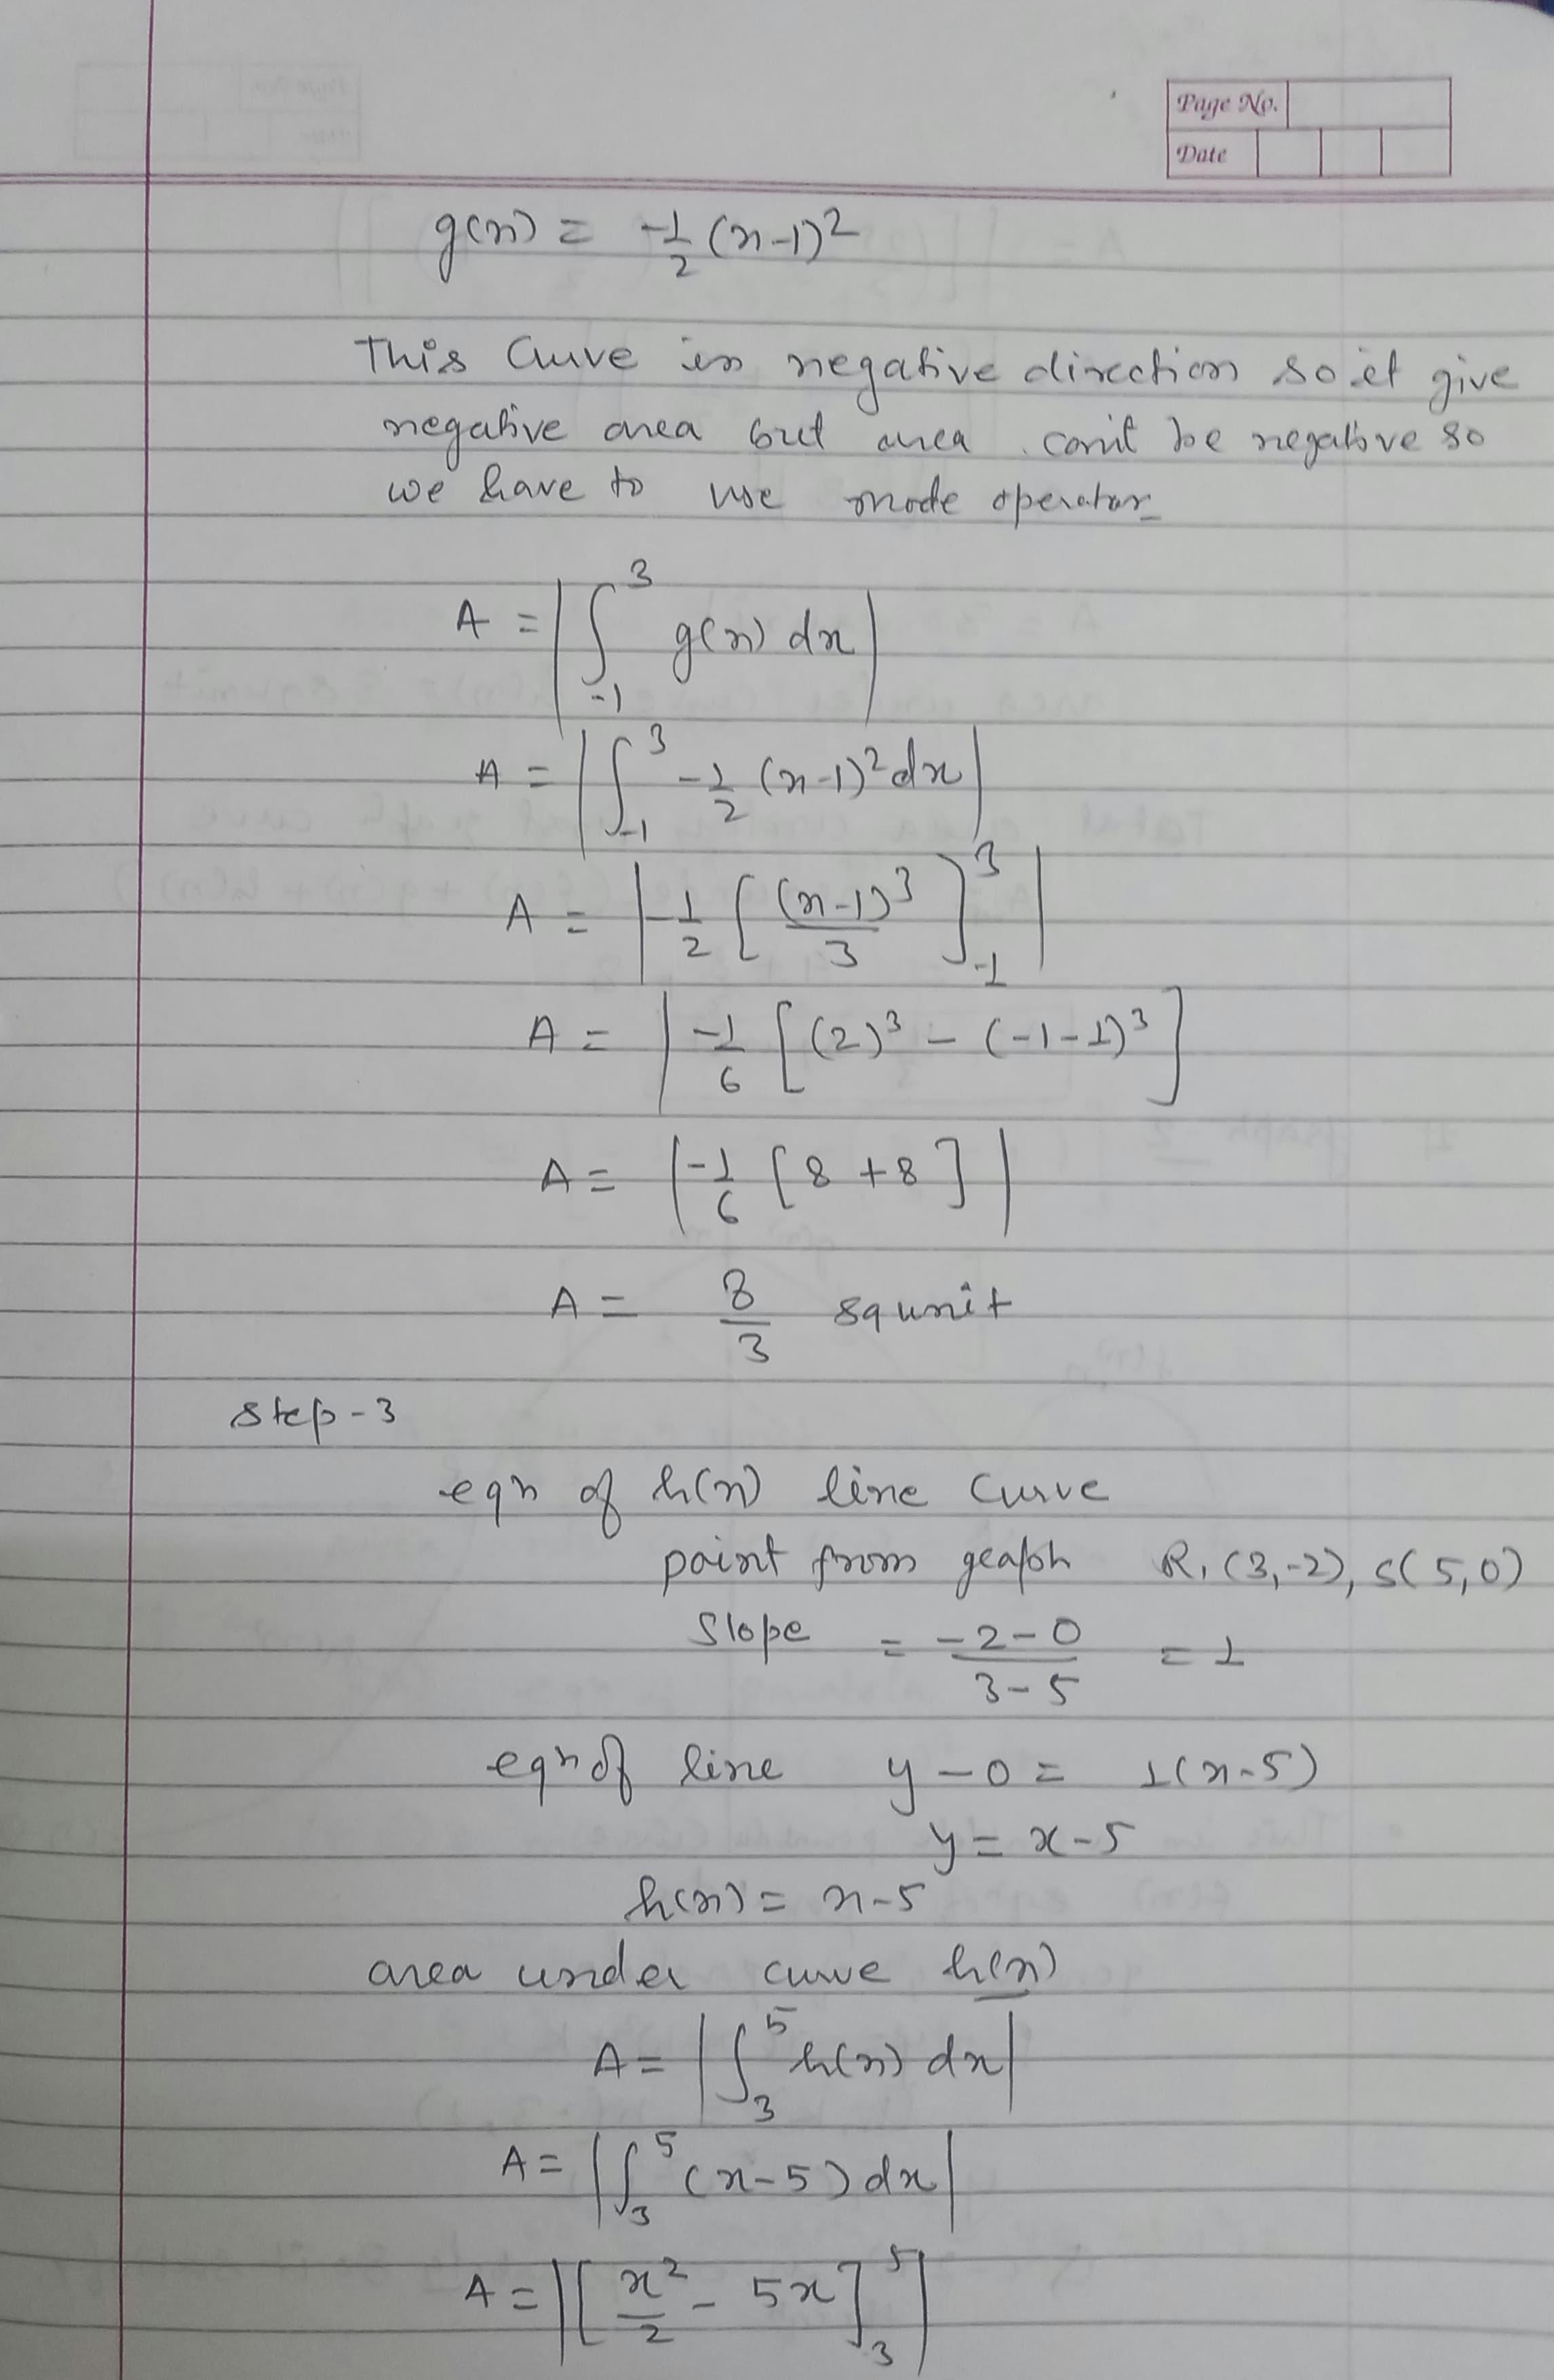 Page No.
Date
g(x) = -1/2 (x-1)^2
This Curve in negative direction so it give
negative area but area can't be negative so
we have to use mode operator
A = |∫_{-1}^{3} g(x) dx|
A = |∫_{-1}^{3} -1/2 (x-1)^2 dx|
A = |-1/2 [(x-1)^3/3]_{-1}^{3}|
A = |-1/6 [(2)^3 - (-1-1)^3]
A = |-1/6 [8+8]|
A = 8/3 sq unit
step-3
eqn of h(x) line curve
point from geaph R, (3,-2), S(5,0)
Slope = -2-0/3-5 = 1
eqn of line y-0 = 1(x-5)
y = x-5
h(x) = x-5
area under curve h(x)
A = |∫_{3}^{5} h(x) dx|
A = |∫_{3}^{5} (x-5) dx|
A = |[x^2/2 - 5x]_{3}^{5}|